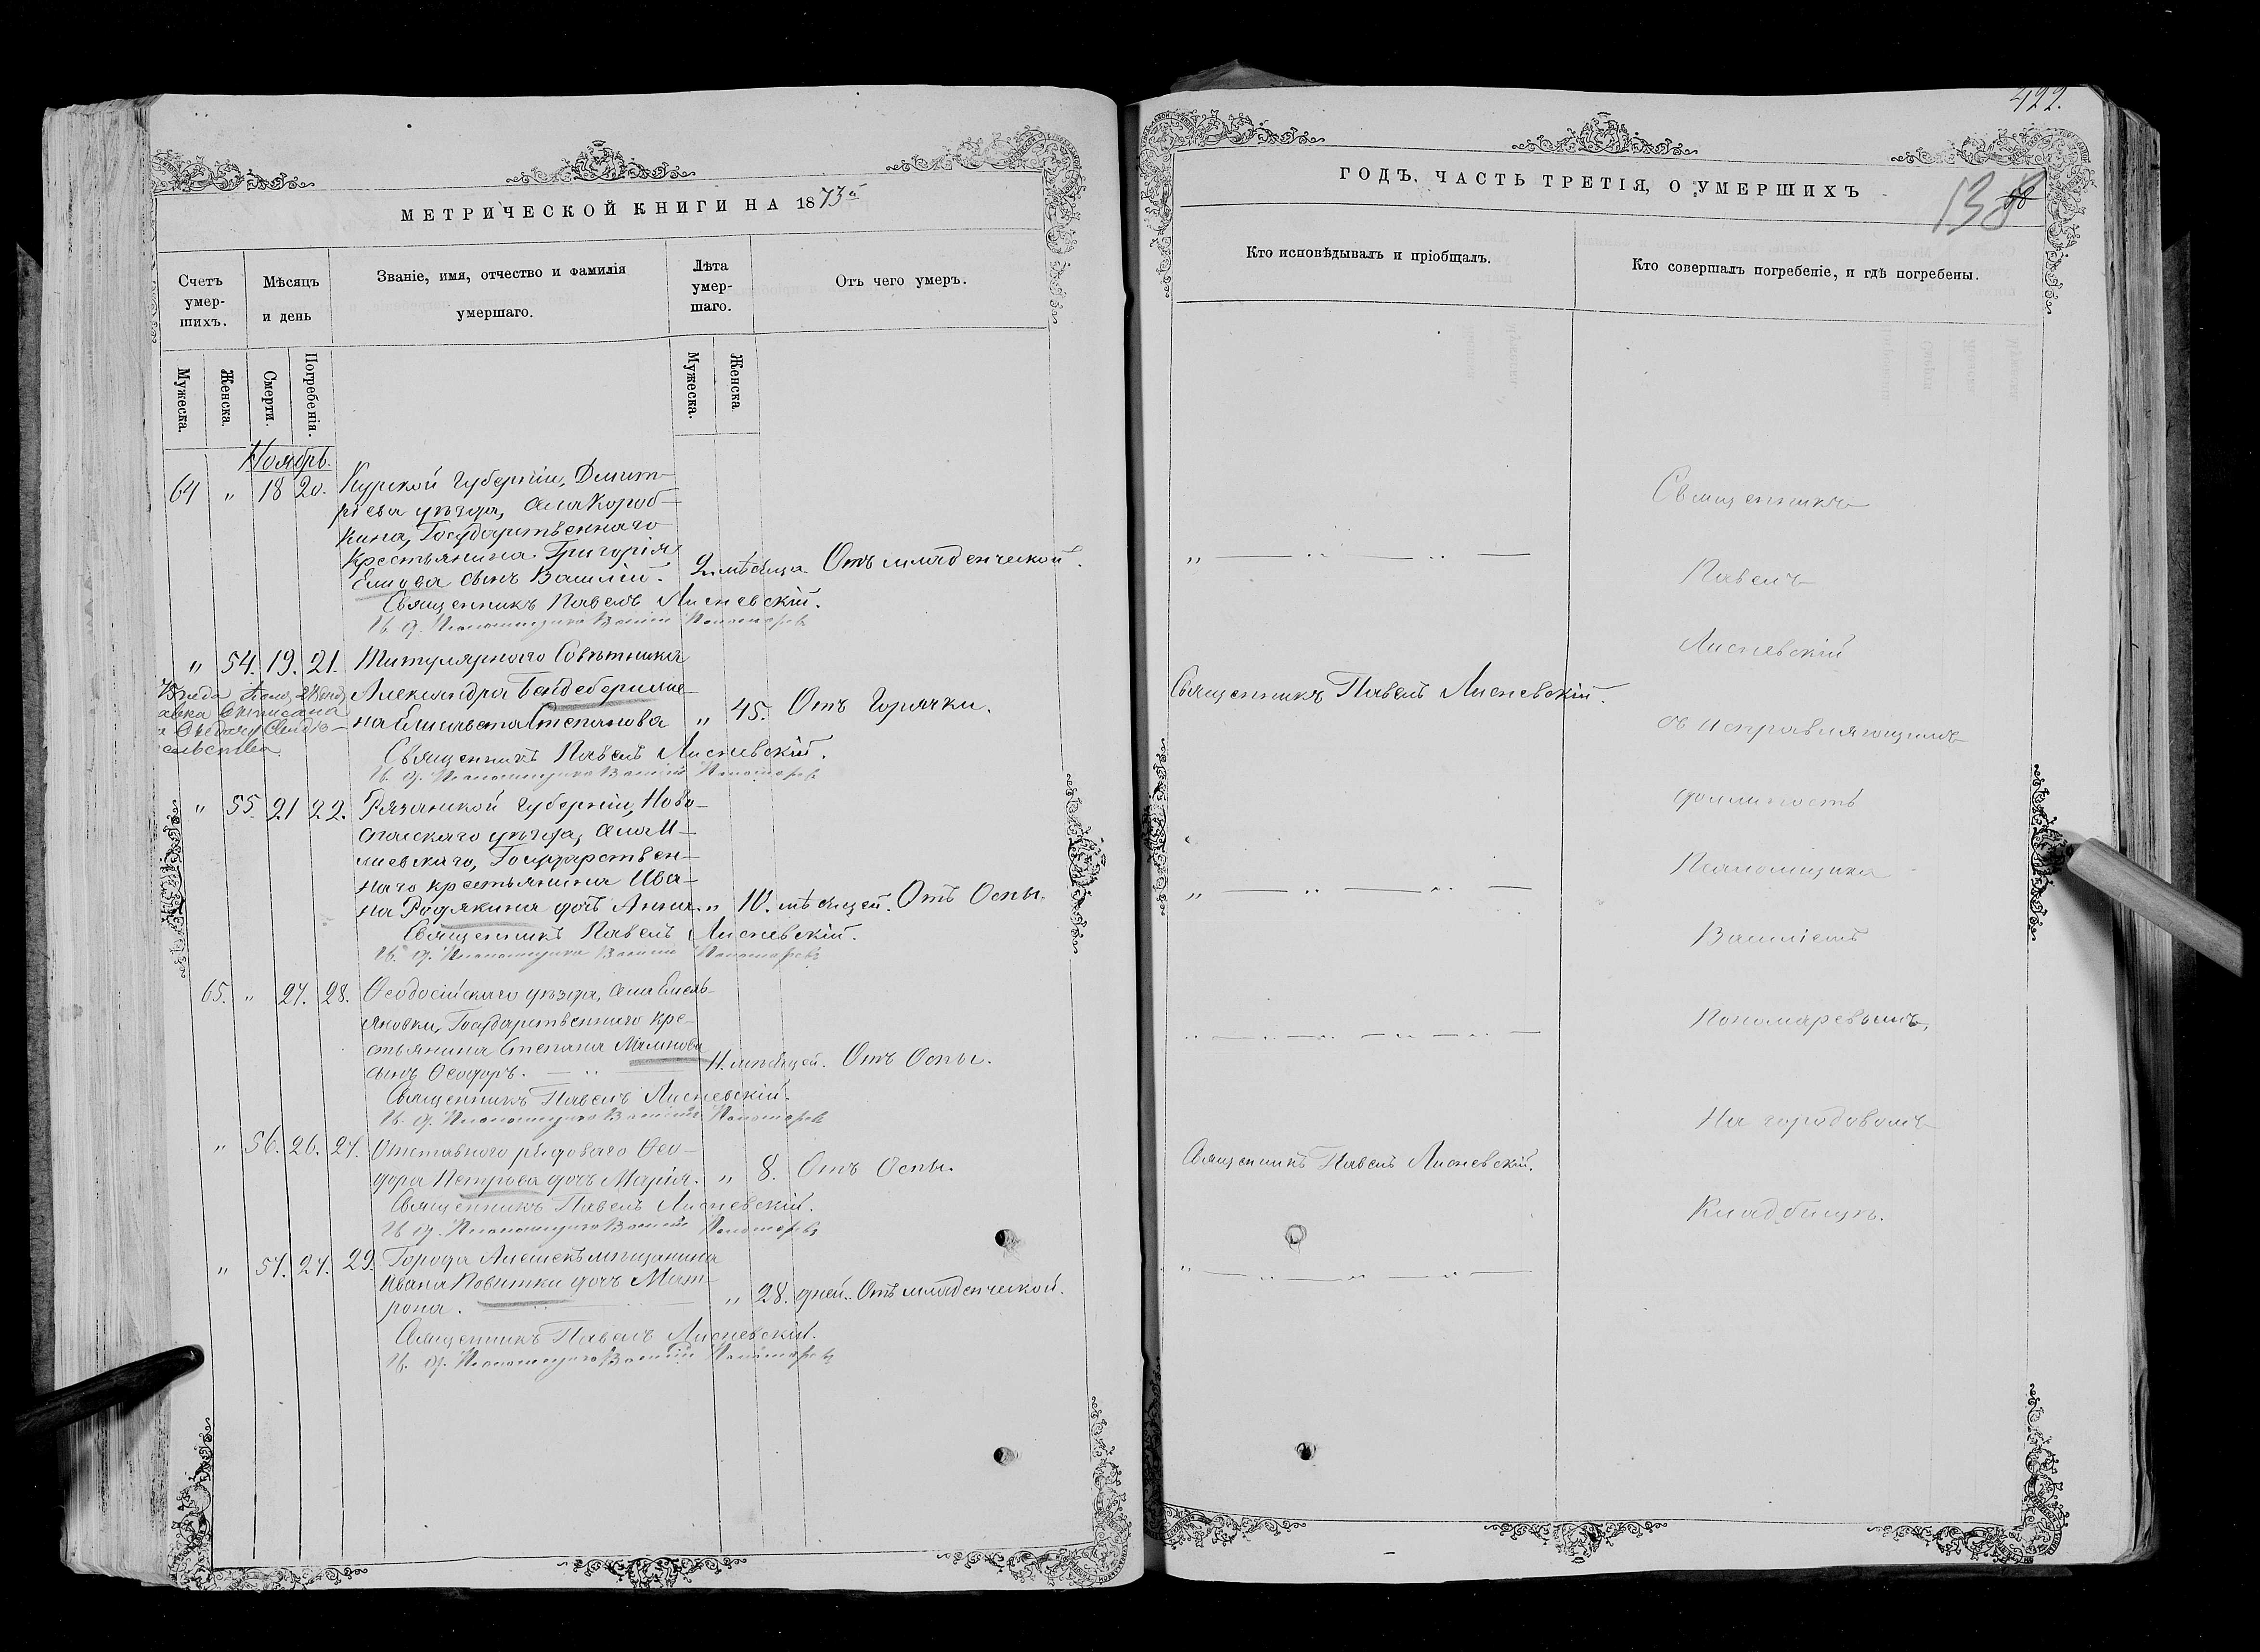 МЕТРИЧЕСКОЙ КНИГИ НА 1873й
Счетъ умер-шихъ.
Мѣсяцъ и день
Званіе, имя, отчество и фамилія умершаго.
Лѣта умер-шаго.
Отъ чего умеръ.
Мужеска.
Женска.
Смерти.
Погребенія.
Мужеска.
Женска
Ноябрь.
64 " 18 20. Курской губерніи, Дмит-
ріева уѣзда, села Короб-
кина, Государственнаго
крестьянина Григорія
сынъ Василій. 2 мѣсяца Отъ младенческой.
Священникъ Павелъ Лисневскій.
И. д. Псаломщика Василій Пономаревъ
" 54. 19. 21. Титулярнаго Совѣтника
Александра
на Елисавета Степанова " 45. Отъ Горячки.
Священникъ Павелъ Лисневскій.
И. д. Псаломщика Василій Пономаревъ
" 55. 21 22. Рязанской губерніи, Ново-
спасскаго уѣзда, села
Государствен-
наго крестьянина Ива-
на Родякина дочь Анна. " 10. мѣсяцей. Отъ Оспы.
Священникъ Павелъ Лисневскій.
И. д. Псаломщика Василій Пономаревъ
65. " 27. 28. Ѳеодосійскаго уѣзда, села Емель-
яновки, Государственнаго кре-
стьянина Степана
сынъ Ѳеодоръ. 11. мѣсяцей. Отъ Оспы.
Священникъ Павелъ Лисневскій.
И. д. Псаломщика Василій Пономаревъ
" 56. 26. 27. Отставного рядоваго Ѳео-
дора Петрова дочь Марія. " 8. Отъ Оспы.
Священникъ Павелъ Лисневскій.
И. д. Псаломщика Василій Пономаревъ
" 57. 27. 29. Города Алешекъ мѣщанина
Ивана дочь Мат-
рона. " 28. дней. Отъ младенческой.
Священникъ Павелъ Лисневскій.
И. д. Псаломщика Василій Пономаревъ
422.
ГОДЪ. ЧАСТЬ ТРЕТІЯ, О УМЕРШИХЪ
138
Кто исповѣдывалъ и пріобщалъ.
Кто совершалъ погребеніе, и гдѣ погребены.
Священникъ
Павелъ
Лисневскій
Священникъ Павелъ Лисневскій.
съ исправляющимъ
должность
Псаломщика
Василіемъ
Пономаревымъ,
На городовомъ
Священникъ Павелъ Лисневскій.
Кладбищѣ.